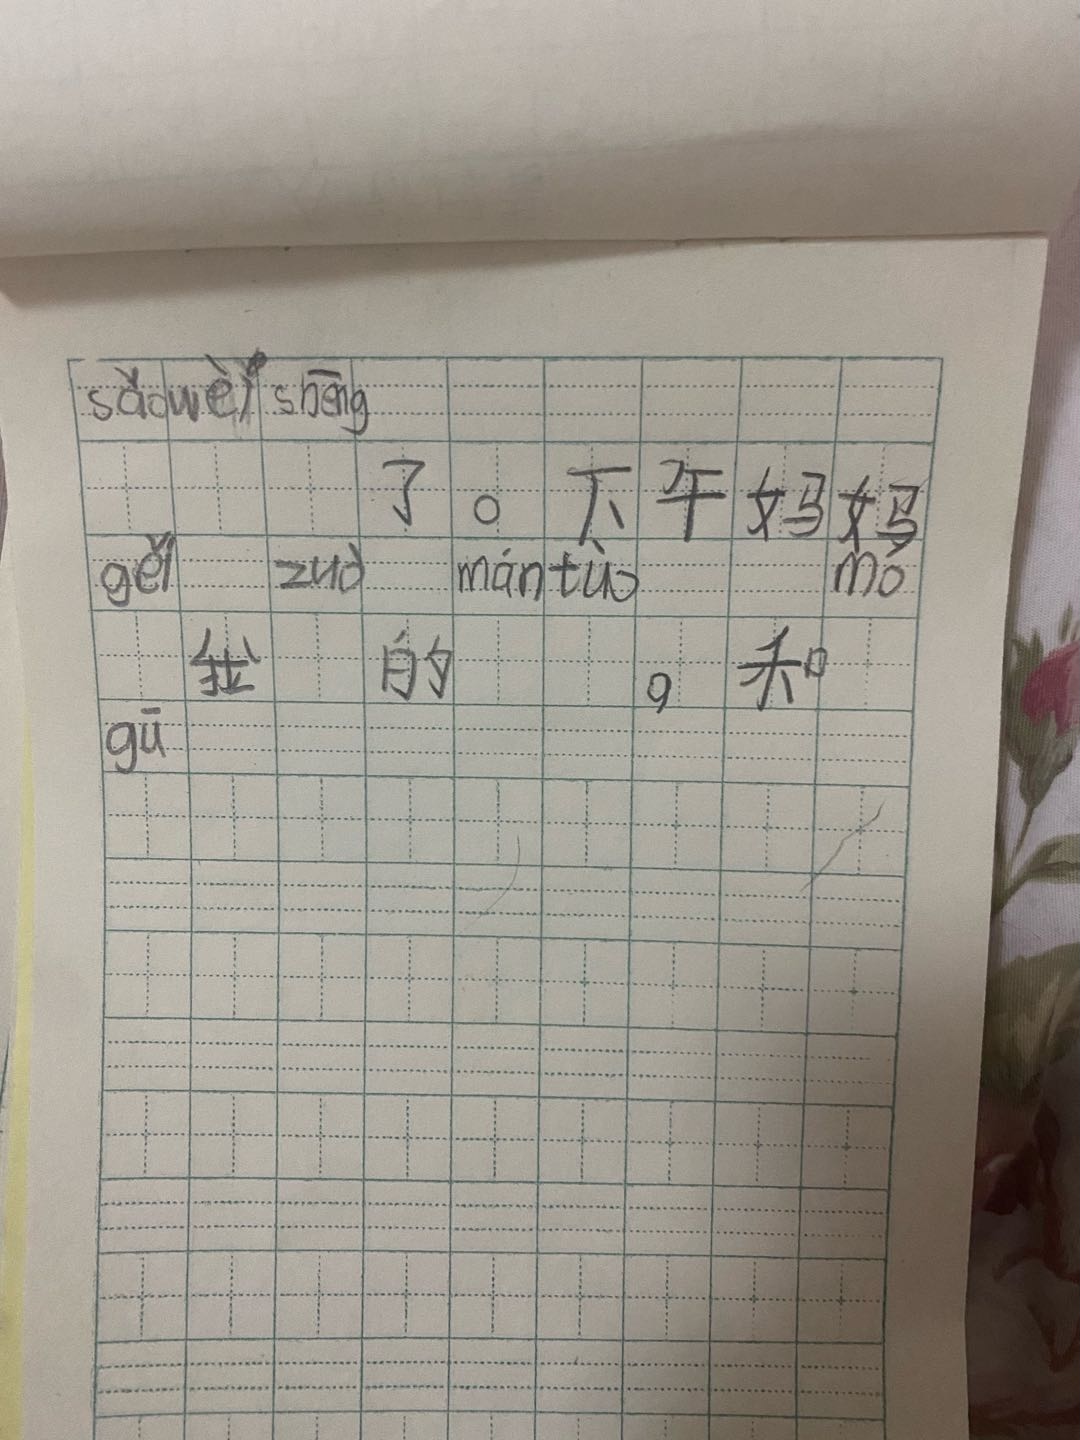 sǎo wèi shēng
了。下午妈妈
gěi zuò mán tùo mó
我的，和
gū